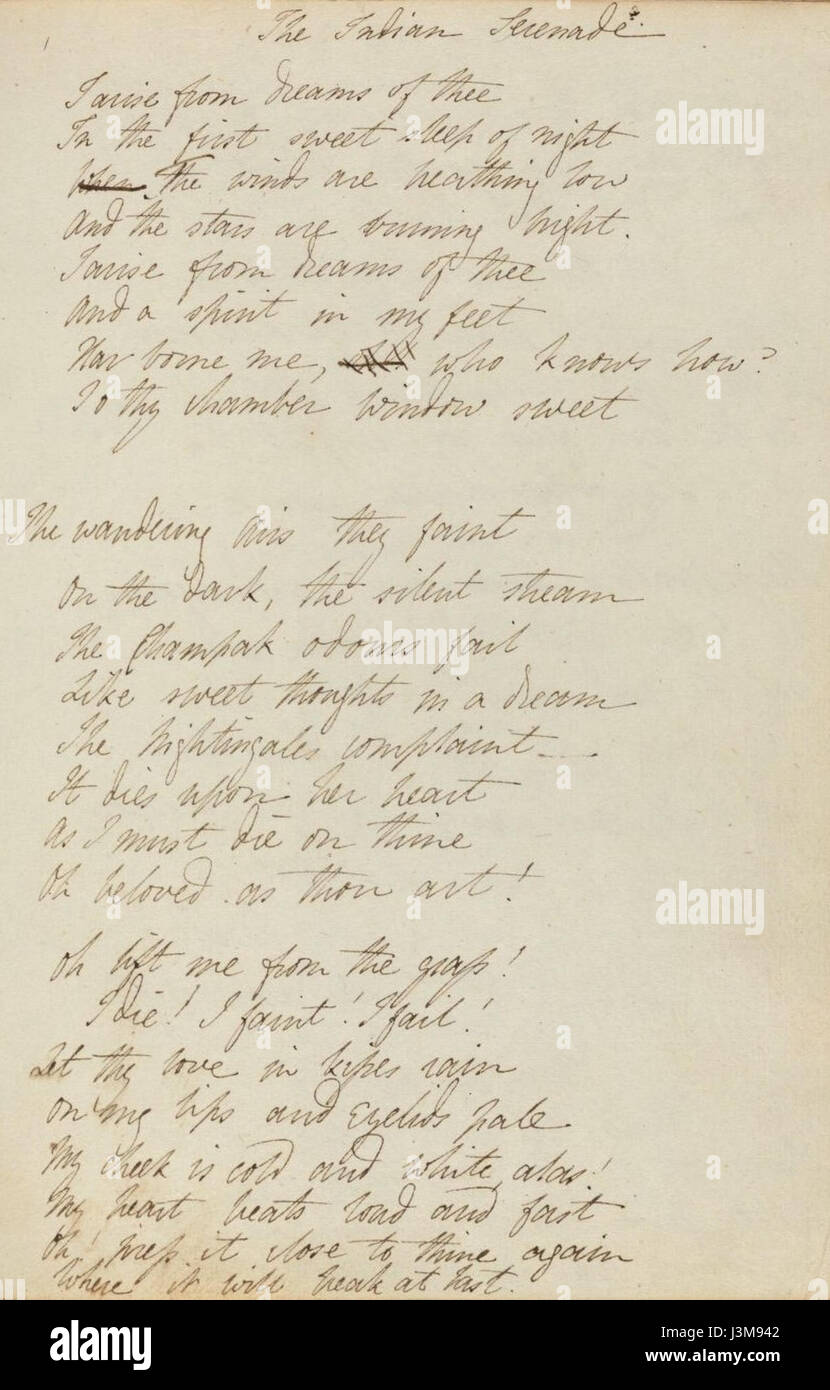 The Indian Serenade.
I arise from dreams of thee
In the first sweet sleep of night
When The winds are breathing low
And the stars are burning bright.
I arise from dreams of thee
And a spirit in my feet
Has borne me, who knows how?
To thy chamber window sweet
The wandering airs they faint
On the dark, the silent stream
The Champak odours fail
Like sweet thoughts in a dream
The Nightingales complaint—
It dies upon her heart
As I must die on thine
Oh beloved as thou art!
Oh lift me from the grass!
I die! I faint! I fail!
Let thy love in kisses rain
On my lips and eyelids pale
My cheek is cold and white, alas!
My heart beats loud and fast
Oh! press it close to thine again
Where it will break at last.
alamy
alamy
alamy
alamy
a
a
a
a
alamy
Image ID: J3M942
www.alamy.com